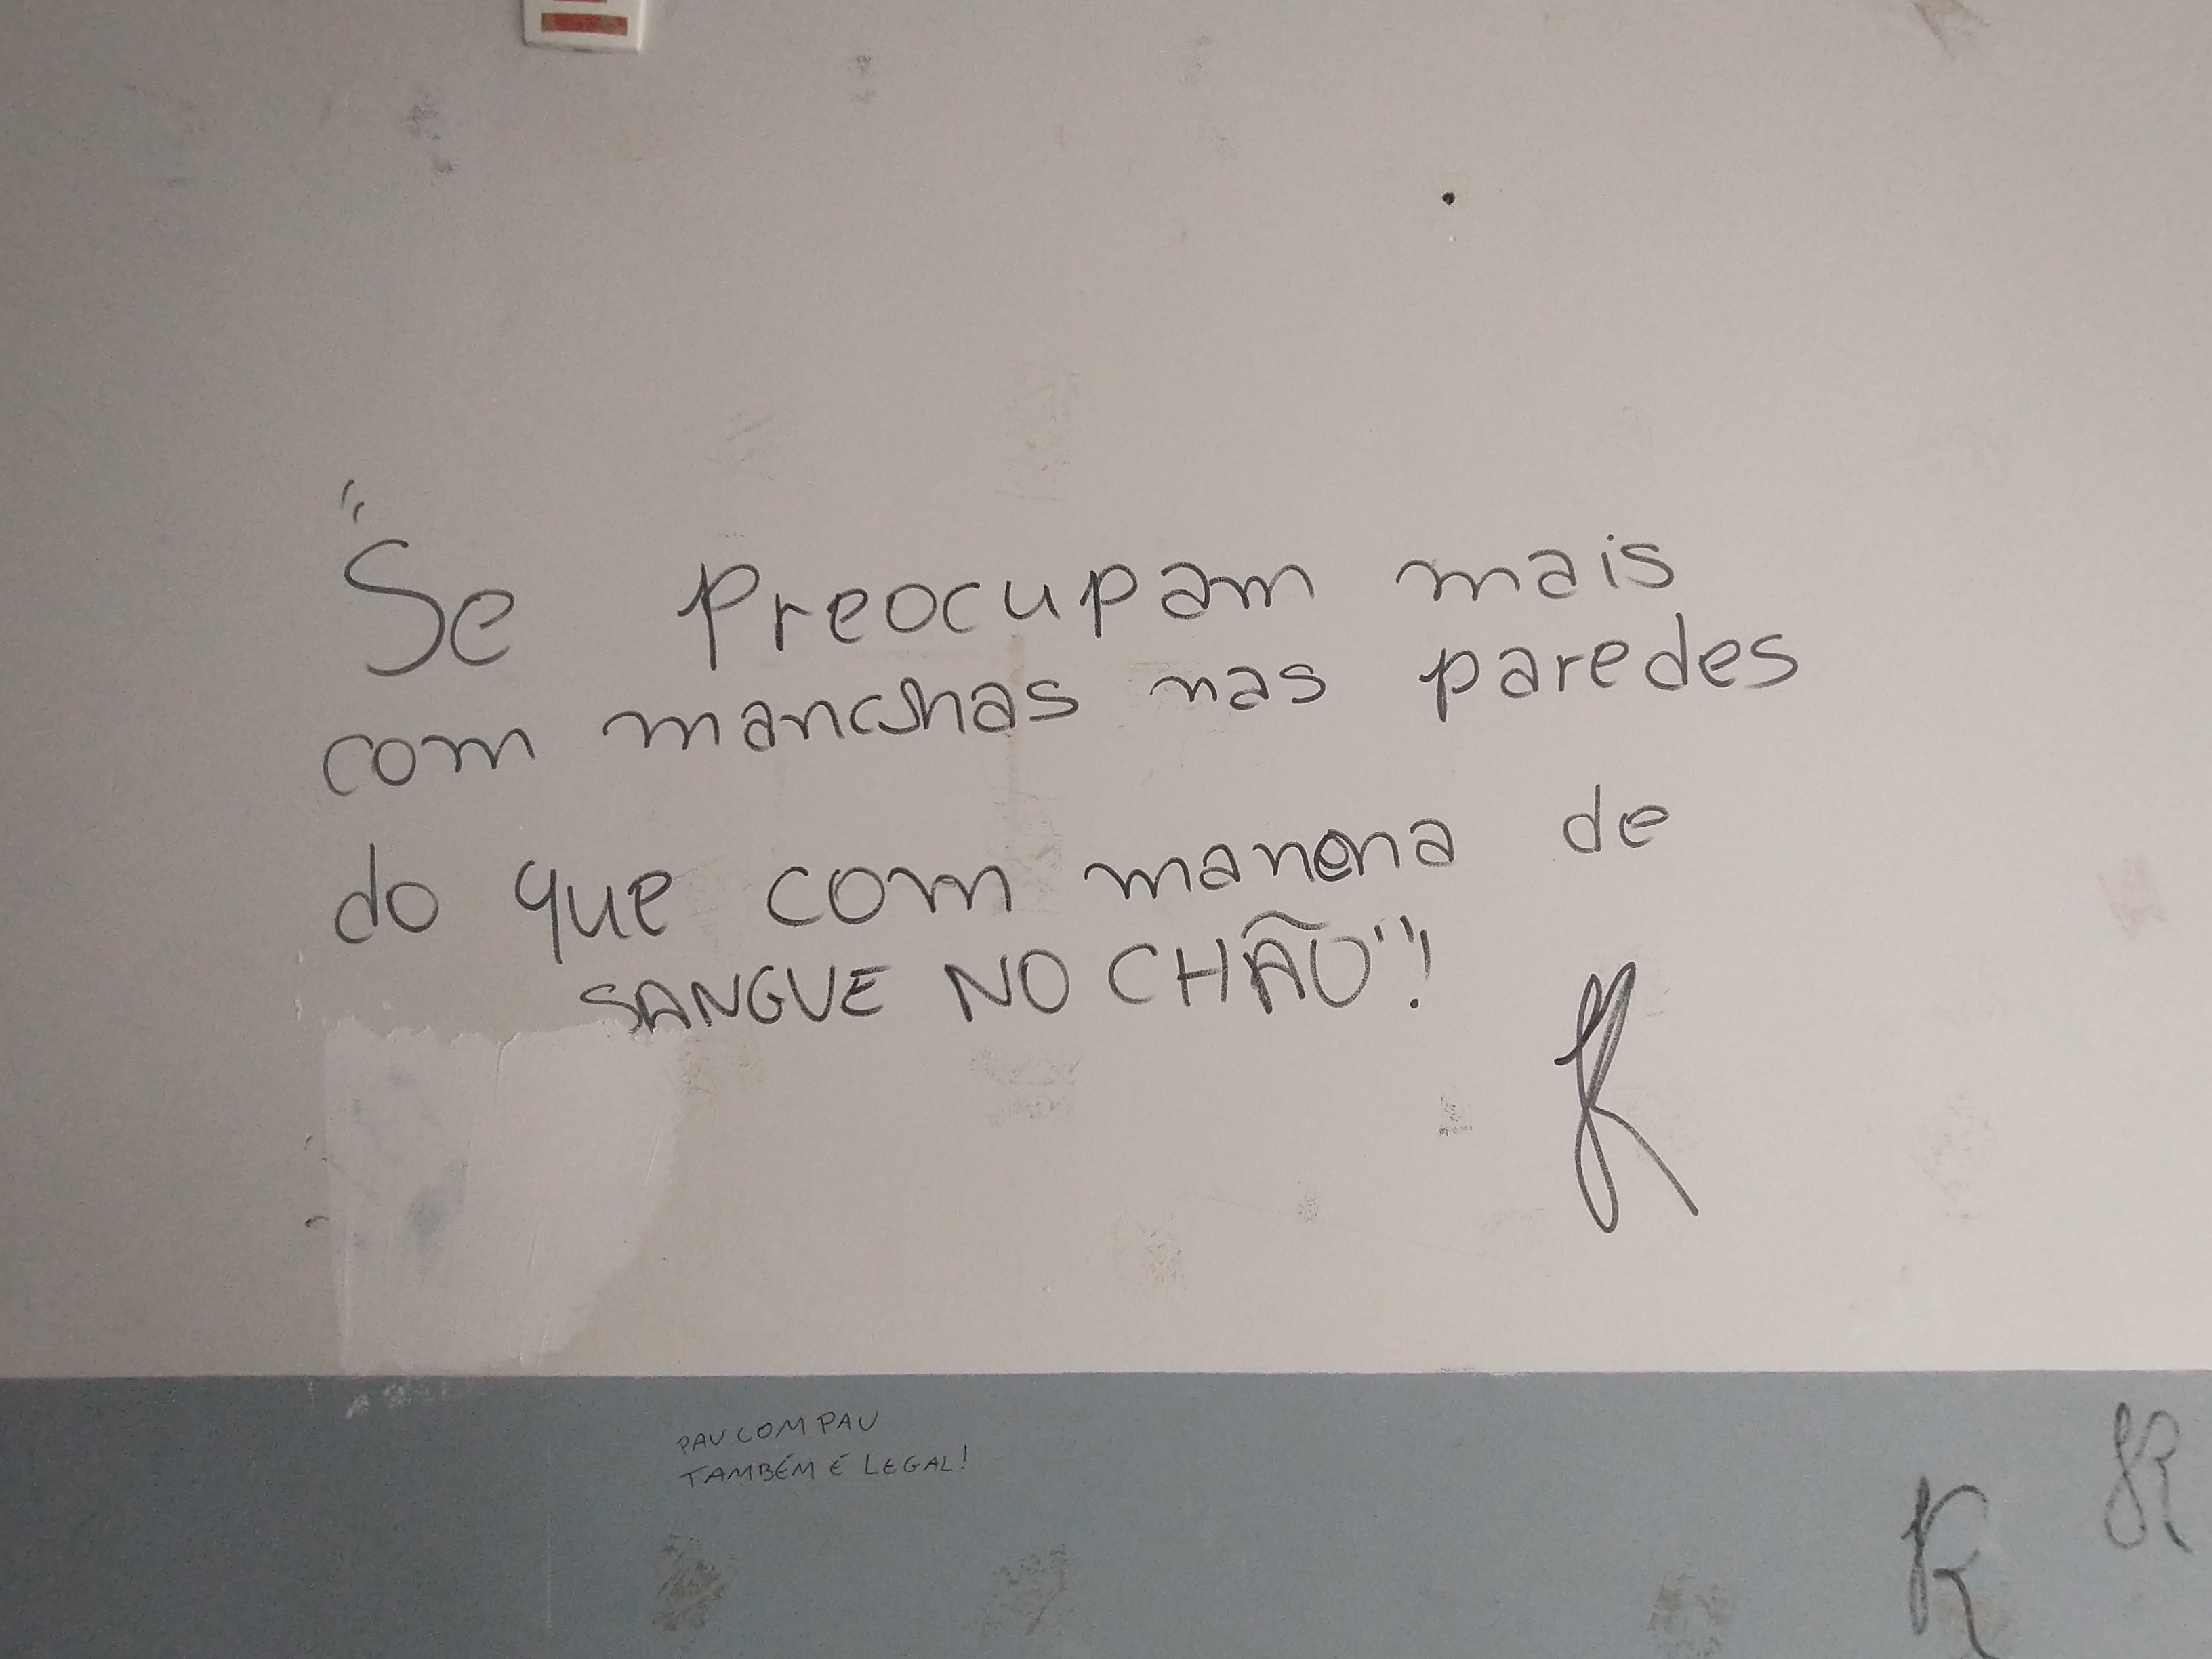 "Se preocupam mais
com manchas nas paredes
do que com mancha de
SANGUE NO CHÃO"!
K
PAU COM PAU
TAMBÉM É LEGAL!
R